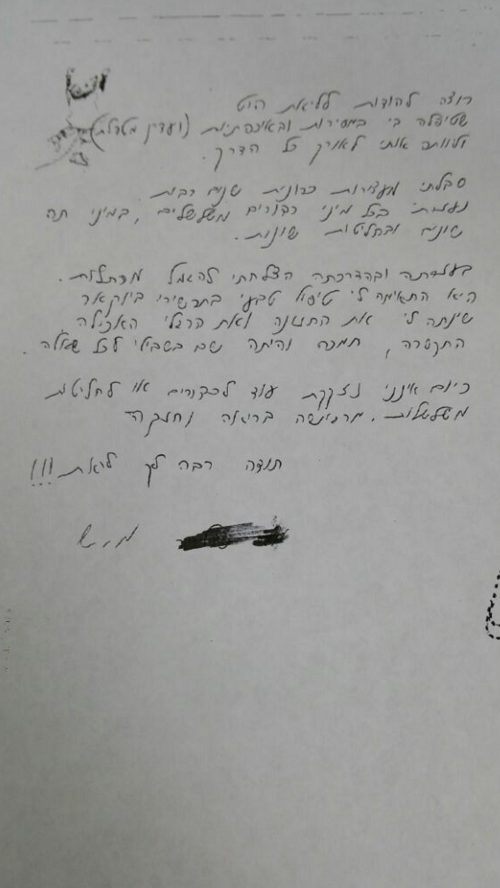 רוצה להודות לליאת היט
שטיפלה בי במסירות ובאיכפתיות (ועדין מטפלת)
ולוותה אותי לאורך כל הדרך.
סבלתי מעצירות כרונית שנים רבות
נעזרתי בכל מיני כדורים משלשלים, במיני תה
שונים ובחליטות שונות.
בעזרתה ובהדרכתה הצלחתי להגמל מהתלות.
היא התאימה לי טיפול טבעי בתכשירי ביוקאר
שינתה לי את התזונה ואת הרגלי האכילה
התקשרה, תמכה והיתה שם בשבילי לכל שאלה.
כיום אינני נזקקת עוד לכדורים או לחליטות
משלשלות. מרגישה בריאה וחזקה
תודה רבה לך ליאת!!!
מ.ש